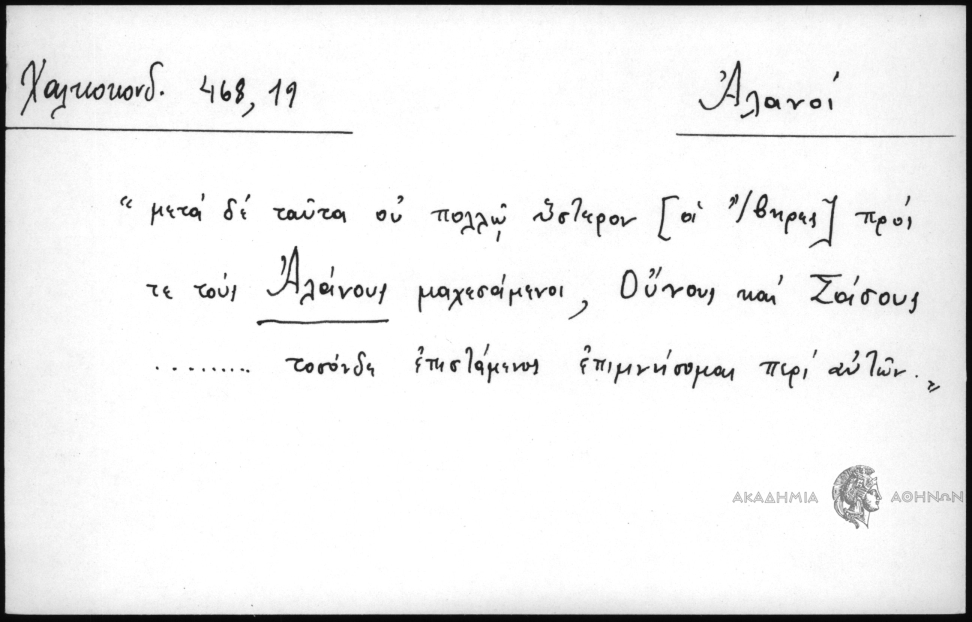 Χαλκοκονδ. 468, 19
Ἀλανοί
“ μετά δέ ταῦτα οὐ πολλῷ ὕστερον [οἱ Ἴβηρες] πρός
τε τούς Ἀλάνους μαχεσάμενοι, Οὕνους καί Σάσους
......... τοσόνδε ἐπιστάμενος ἐπιμνήσομαι περί αὐτῶν. „
ΑΚΑΔΗΜΙΑ ΑΘΗΝΩΝ